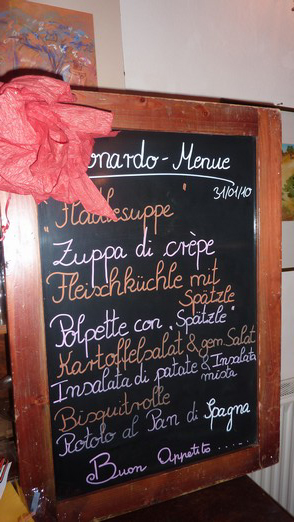 onardo-Menue
31/01/10
"Flädlesuppe"
Zuppa di crèpe
Fleischküchle mit
Spätzle
Polpette con „Spätzle"
Kartoffelsalat & gem. Salat
Insalata di patate & Insalata
mista
Bisquitrolle
Rotolo al Pan di Spagna
Buon Appetito.....